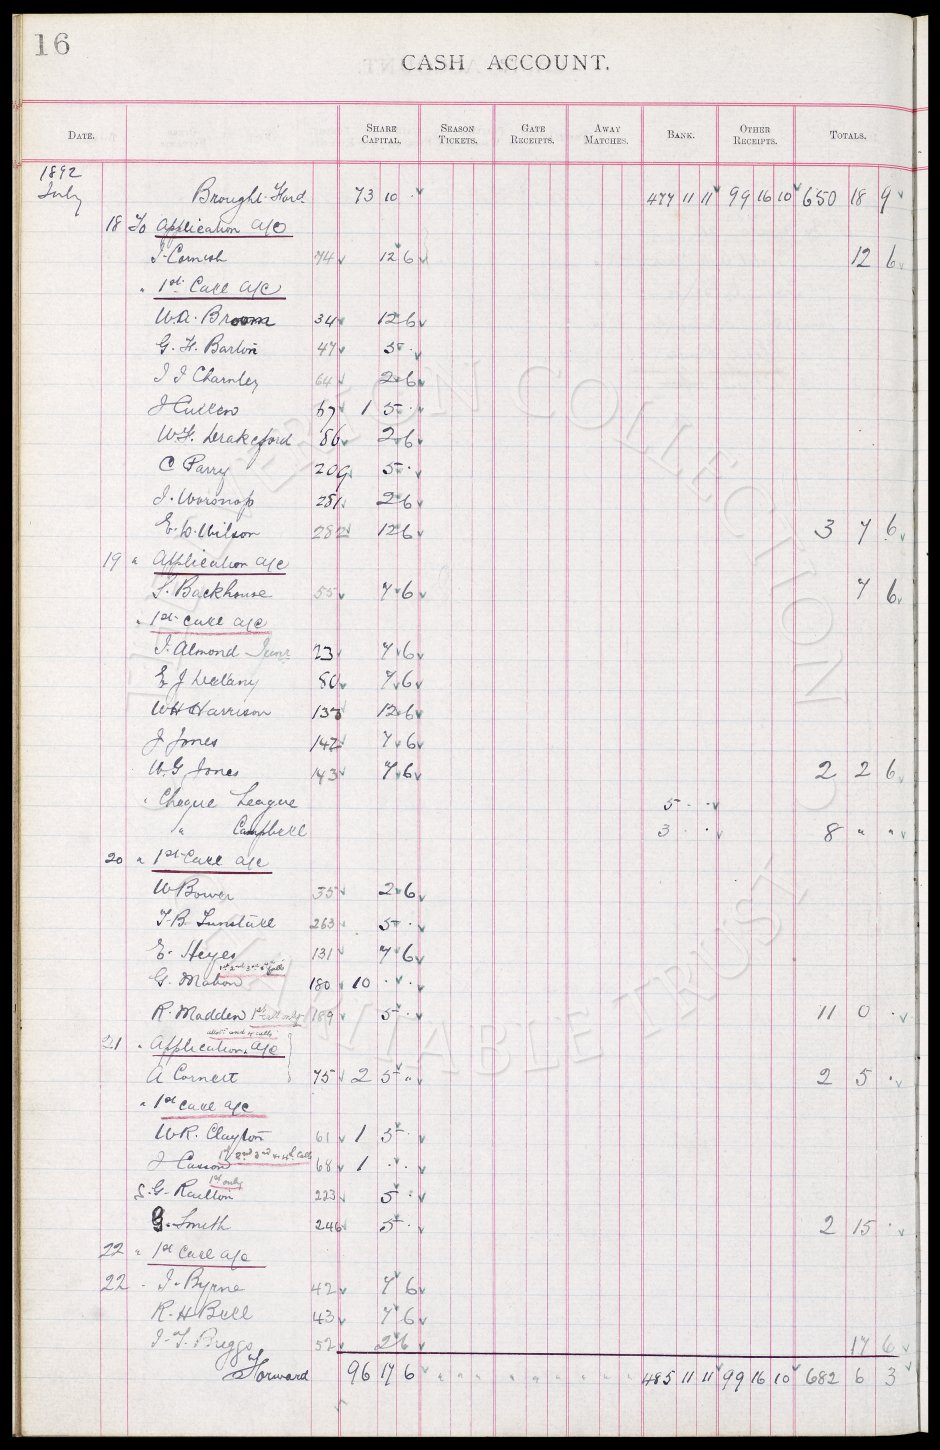 16
CASH ACCOUNT.
DATE. SHARE CAPITAL. SEASON TICKETS. GATE RECEIPTS. AWAY MATCHES. BANK. OTHER RECEIPTS. TOTALS.
1892
July Brought Ford 73 10 · 477 11 11 99 16 10 650 18 9
18 To Application a/c
J. Cornish 74 12 6 12 6
" 1st Call a/c
W.A. Broom 34 12 6
G. H. Barton 47 5 ·
J J Charnley 64 2 6
J Cullen 67 1 5 ·
W.F. Drakeford 86 2 6
C Parry 209 5 ·
J. Worsnop 281 2 6
E. W. Wilson 282 12 6 3 7 6
19 " Application a/c
S. Backhouse 55 7 6 7 6
" 1st Call a/c
J. Almond Junr 23 7 6
E J Delany 80 7 6
W H Harrison 135 12 6
J Jones 142 7 6
W. G Jones 143 7 6 2 2 6
" Cheque League 5 · ·
" Campbell 3 · 8 " "
20 " 1st Call a/c
W Bower 35 2 6
T. B. Tunstall 263 5 ·
E. Heyes 131 7 6
1st 2nd 3rd 4th Calls
G. Mahon 180 10 · ·
R. Madden 1st call only 189 5 · 11 0 ·
allott and 4 calls
21 " Application a/c
A Cornett 75 2 5 " 2 5 ·
" 1st Call a/c
W R. Clayton 61 1 5 ·
J Casson 1st 2nd 3rd & 4th Calls 68 1 · ·
1st only
S. G. Railton 223 5 ·
G. Smith 246 5 · 2 15 ·
22 " 1st Call a/c
22 " J. Byrne 42 7 6
R. H Bull 43 7 6
J. T. Briggs 52 2 6 17 6
Forward 96 17 6 " " " " " " " " " 485 11 11 99 16 10 682 6 3
THE EVERTON COLLECTION CHARITABLE TRUST